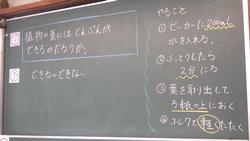 植物の葉には、でんぷんが
できるのだろうか。
できるorできない
やること
① ビーカーに200mL
水を入れる。
② ふっとうしたら
2分にる
③ 葉を取り出して
ろ紙の上におく
④ コルクで軽くたたく